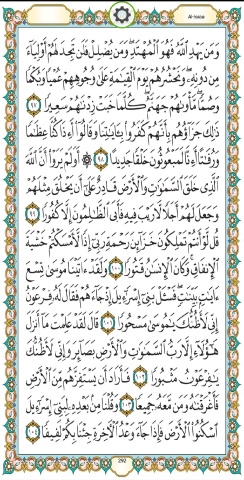 Al-Israa
وَمَن يَهْدِ ٱللَّهُ فَهُوَ ٱلْمُهْتَدِ ۖ وَمَن يُضْلِلْ فَلَن تَجِدَ لَهُمْ أَوْلِيَآءَ
مِن دُونِهِۦ ۖ وَنَحْشُرُهُمْ يَوْمَ ٱلْقِيَٰمَةِ عَلَىٰ وُجُوهِهِمْ عُمْيًا وَبُكْمًا
وَصُمًّا ۖ مَّأْوَىٰهُمْ جَهَنَّمُ ۖ كُلَّمَا خَبَتْ زِدْنَٰهُمْ سَعِيرًا ٩٧
ذَٰلِكَ جَزَآؤُهُم بِأَنَّهُمْ كَفَرُوا۟ بِـَٔايَٰتِنَا وَقَالُوٓا۟ أَءِذَا كُنَّا عِظَٰمًا
وَرُفَٰتًا أَءِنَّا لَمَبْعُوثُونَ خَلْقًا جَدِيدًا ٩٨ ۞ أَوَلَمْ يَرَوْا۟ أَنَّ ٱللَّهَ
ٱلَّذِى خَلَقَ ٱلسَّمَٰوَٰتِ وَٱلْأَرْضَ قَادِرٌ عَلَىٰٓ أَن يَخْلُقَ مِثْلَهُمْ
وَجَعَلَ لَهُمْ أَجَلًا لَّا رَيْبَ فِيهِ فَأَبَى ٱلظَّٰلِمُونَ إِلَّا كُفُورًا ٩٩
قُل لَّوْ أَنتُمْ تَمْلِكُونَ خَزَآئِنَ رَحْمَةِ رَبِّىٓ إِذًا لَّأَمْسَكْتُمْ خَشْيَةَ
ٱلْإِنفَاقِ ۚ وَكَانَ ٱلْإِنسَٰنُ قَتُورًا ١٠٠ وَلَقَدْ ءَاتَيْنَا مُوسَىٰ تِسْعَ
ءَايَٰتٍۭ بَيِّنَٰتٍ ۖ فَسْـَٔلْ بَنِىٓ إِسْرَٰٓءِيلَ إِذْ جَآءَهُمْ فَقَالَ لَهُۥ فِرْعَوْنُ
إِنِّى لَأَظُنُّكَ يَٰمُوسَىٰ مَسْحُورًا ١٠١ قَالَ لَقَدْ عَلِمْتَ مَآ أَنزَلَ
هَٰٓؤُلَآءِ إِلَّا رَبُّ ٱلسَّمَٰوَٰتِ وَٱلْأَرْضِ بَصَآئِرَ وَإِنِّى لَأَظُنُّكَ
يَٰفِرْعَوْنُ مَثْبُورًا ١٠٢ فَأَرَادَ أَن يَسْتَفِزَّهُم مِّنَ ٱلْأَرْضِ
فَأَغْرَقْنَٰهُ وَمَن مَّعَهُۥ جَمِيعًا ١٠٣ وَقُلْنَا مِنۢ بَعْدِهِۦ لِبَنِىٓ إِسْرَٰٓءِيلَ
ٱسْكُنُوا۟ ٱلْأَرْضَ فَإِذَا جَآءَ وَعْدُ ٱلْـَٔاخِرَةِ جِئْنَا بِكُمْ لَفِيفًا ١٠٤
292